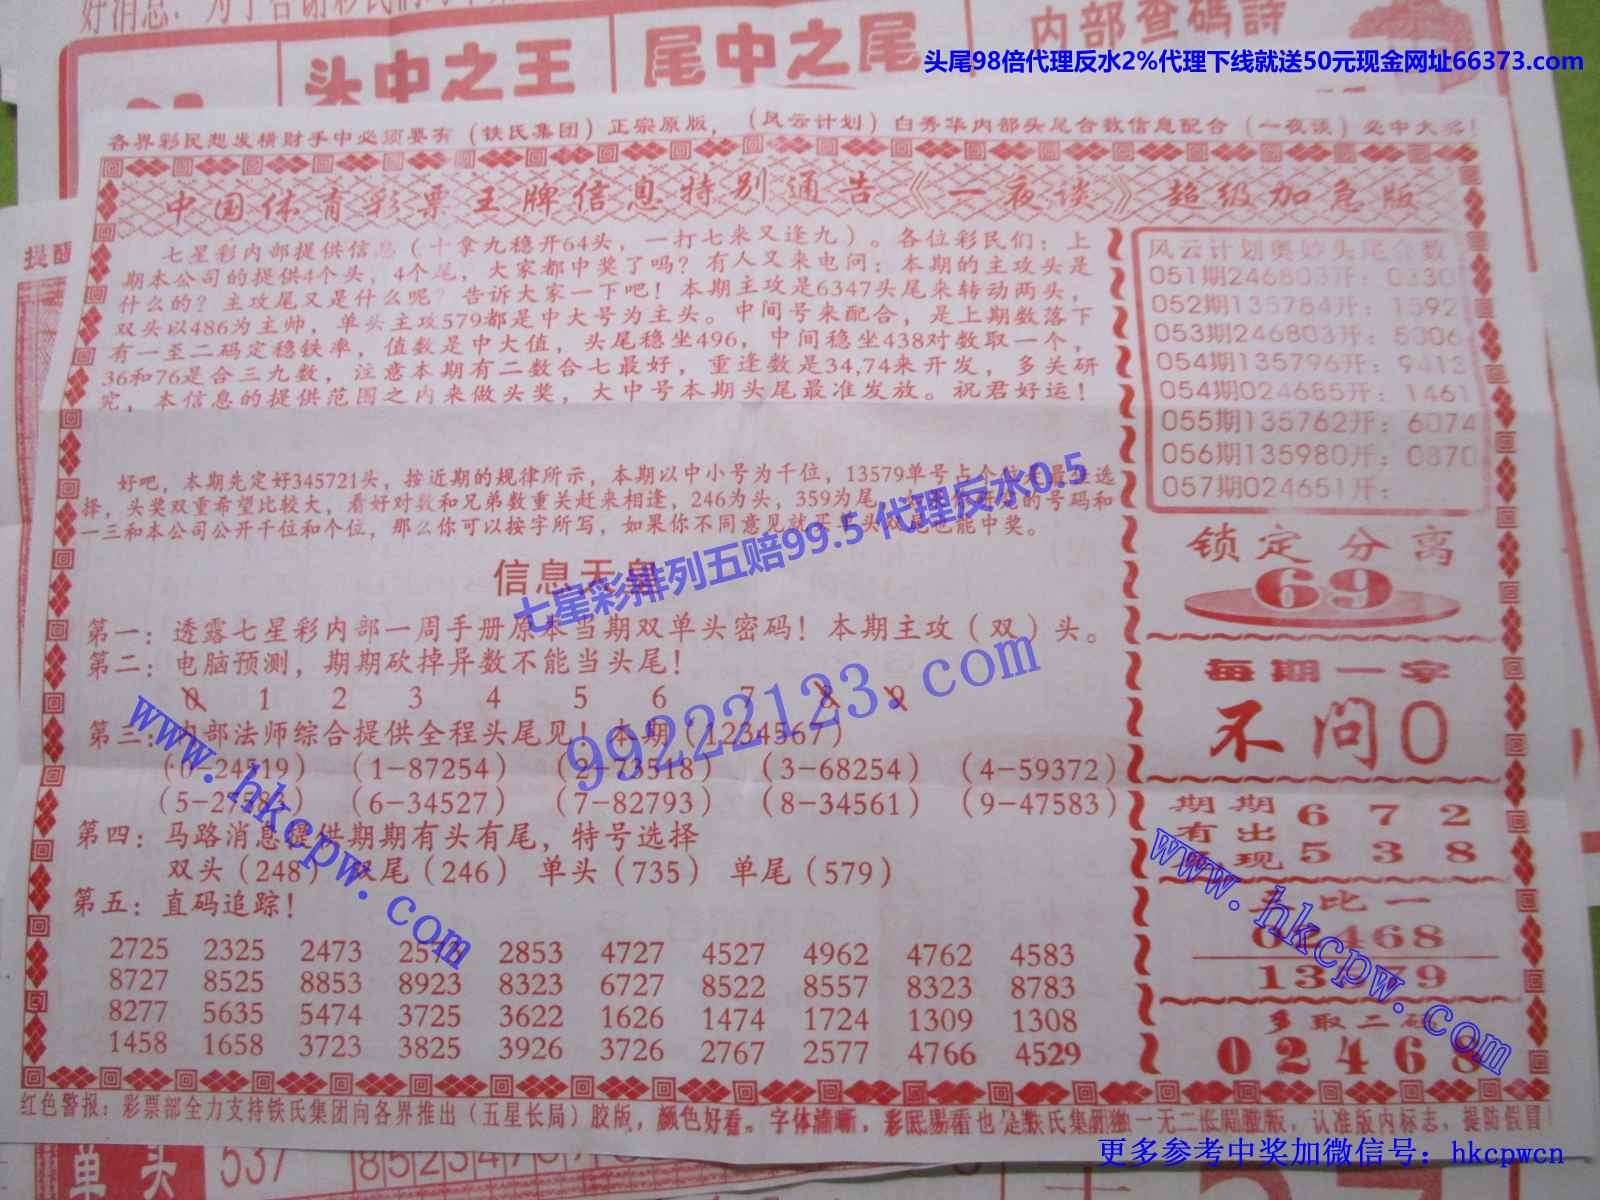 内部查碼詩
头中之王
尾中之尾
头尾98倍代理反水2%代理下线就送50元现金网址66373.com
各界彩民想发横财手中必须要有（铁氏集团）正宗原版，（风云计划）白秀华内部头尾合数信息配合（一夜谈）必中大奖！
中国体育彩票王牌信息特别通告《一夜谈》超级加急版
七星彩内部提供信息（十拿九稳开64头，一打七来又逢九）。各位彩民们：上
期本公司的提供4个头，4个尾，大家都中奖了吗？有人又来电问：本期的主攻头是
什么的？主攻尾又是什么呢？告诉大家一下吧！本期主攻是6347头尾来转动两头，
双头以486为主帅，单头主攻579都是中大号为主头。中间号来配合，是上期数落下
有一至二码定稳铁率，值数是中大值，头尾稳坐496，中间稳坐438对数取一个，
36和76是合三九数，注意本期有二数合七最好，重逢数是34,74来开发，多关研
究，本信息的提供范围之内来做头奖，大中号本期头尾最准发放。祝君好运！
好吧，本期先定好345721头，按近期的规律所示，本期以中小号为千位，13579单号占个位是最佳选
择，头奖双重希望比较大，看好对数和兄弟数重关赶来相逢，246为头，359为尾，的号码和
一三和本公司公开千位和个位，那么你可以按字所写，如果你不同意见就买头双尾也能中奖。
七星彩排列五赔99.5 代理反水0.5
信息天皇
第一：透露七星彩内部一周手册原本当期双单头密码！本期主攻（双）头。
第二：电脑预测，期期砍掉异数不能当头尾！
0 1 2 3 4 5 6 7 8 9
99222123.com
第三：内部法师综合提供全程头尾见！本期（1234567）
（0-24519）（1-87254）（2-73518）（3-68254）（4-59372）
（6-34527）（7-82793）（8-34561）（9-47583）
www.hkcpw.com
第四：马路消息提供期期有头有尾，特号选择
双头（248）双尾（246） 单头（735） 单尾（579）
第五：直码追踪！
2725 2325 2473 2573 2853 4727 4527 4962 4762 4583
8727 8525 8853 8923 8323 6727 8522 8557 8323 8783
8277 5635 5474 3725 3622 1626 1474 1724 1309 1308
1458 1658 3723 3825 3926 3726 2767 2577 4766 4529
风云计划奥妙头尾合数
051期246803开：0330
052期135784开：1592
053期246803开：5006
054期135796开：9413
054期024685开：1461
055期135762开：6074
056期135980开：0870
057期024651开：
锁定分离
69
每期一字
不问0
期期 6 7 2
有出
现 5 3 8
www.hkcpw.com
五比一
02468
13579
多取二码
02468
红色警报：彩票部全力支持铁氏集团向各界推出（五星长局）胶版，颜色好看。字体清晰，彩民易看也是铁氏集团独一无二长局胶版，认准版内标志，提防假冒
更多参考中奖加微信号：hkcpwcn
单头 537